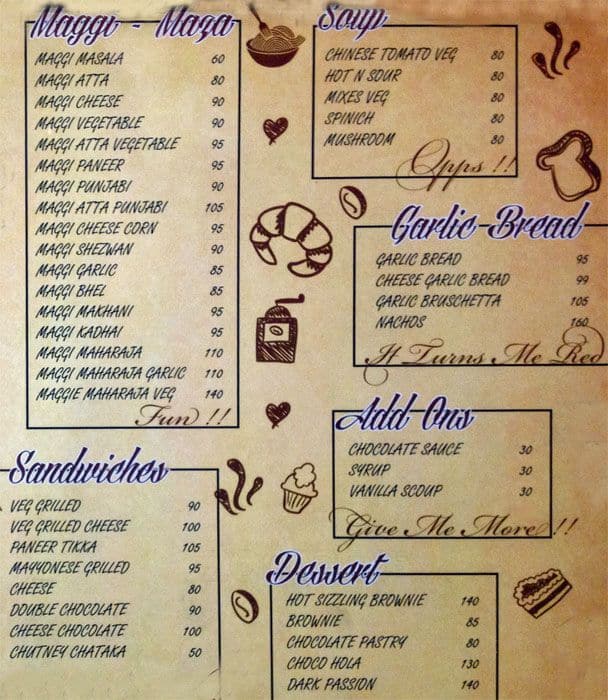 Maggi - Maza
MAGGI MASALA 60
MAGGI ATTA 80
MAGGI CHEESE 90
MAGGI VEGETABLE 90
MAGGI ATTA VEGETABLE 95
MAGGI PANEER 95
MAGGI PUNJABI 90
MAGGI ATTA PUNJABI 105
MAGGI CHEESE CORN 95
MAGGI SHEZWAN 90
MAGGI GARLIC 85
MAGGI BHEL 85
MAGGI MAKHANI 95
MAGGI KADHAI 95
MAGGI MAHARAJA 110
MAGGI MAHARAJA GARLIC 110
MAGGIE MAHARAJA VEG 140
Fun !!
Sandwiches
VEG GRILLED 90
VEG GRILLED CHEESE 100
PANEER TIKKA 105
MAYYONESE GRILLED 95
CHEESE 80
DOUBLE CHOCOLATE 90
CHEESE CHOCOLATE 100
CHUTNEY CHATAKA 50
Soup
CHINESE TOMATO VEG 80
HOT N SOUR 80
MIXES VEG 80
SPINICH 80
MUSHROOM 80
Opps !!
Garlic Bread
GARLIC BREAD 95
CHEESE GARLIC BREAD 99
GARLIC BRUSCHETTA 105
NACHOS 160
It Turns Me Red
Add Ons
CHOCOLATE SAUCE 30
SYRUP 30
VANILLA SCOUP 30
Give Me More !!
Dessert
HOT SIZZLING BROWNIE 140
BROWNIE 85
CHOCOLATE PASTRY 80
CHOCO HOLA 130
DARK PASSION 140